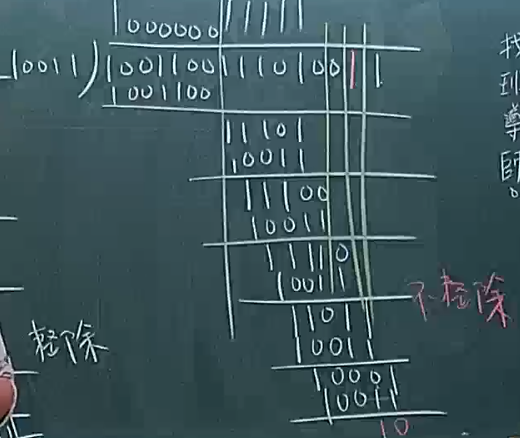 1000000 11111
10011)1001100 11101001 1
1001100
11101
10011
11100
10011
11110
10011
11011
10011
10001
10011
10
不整除
整除
找
到
導
師